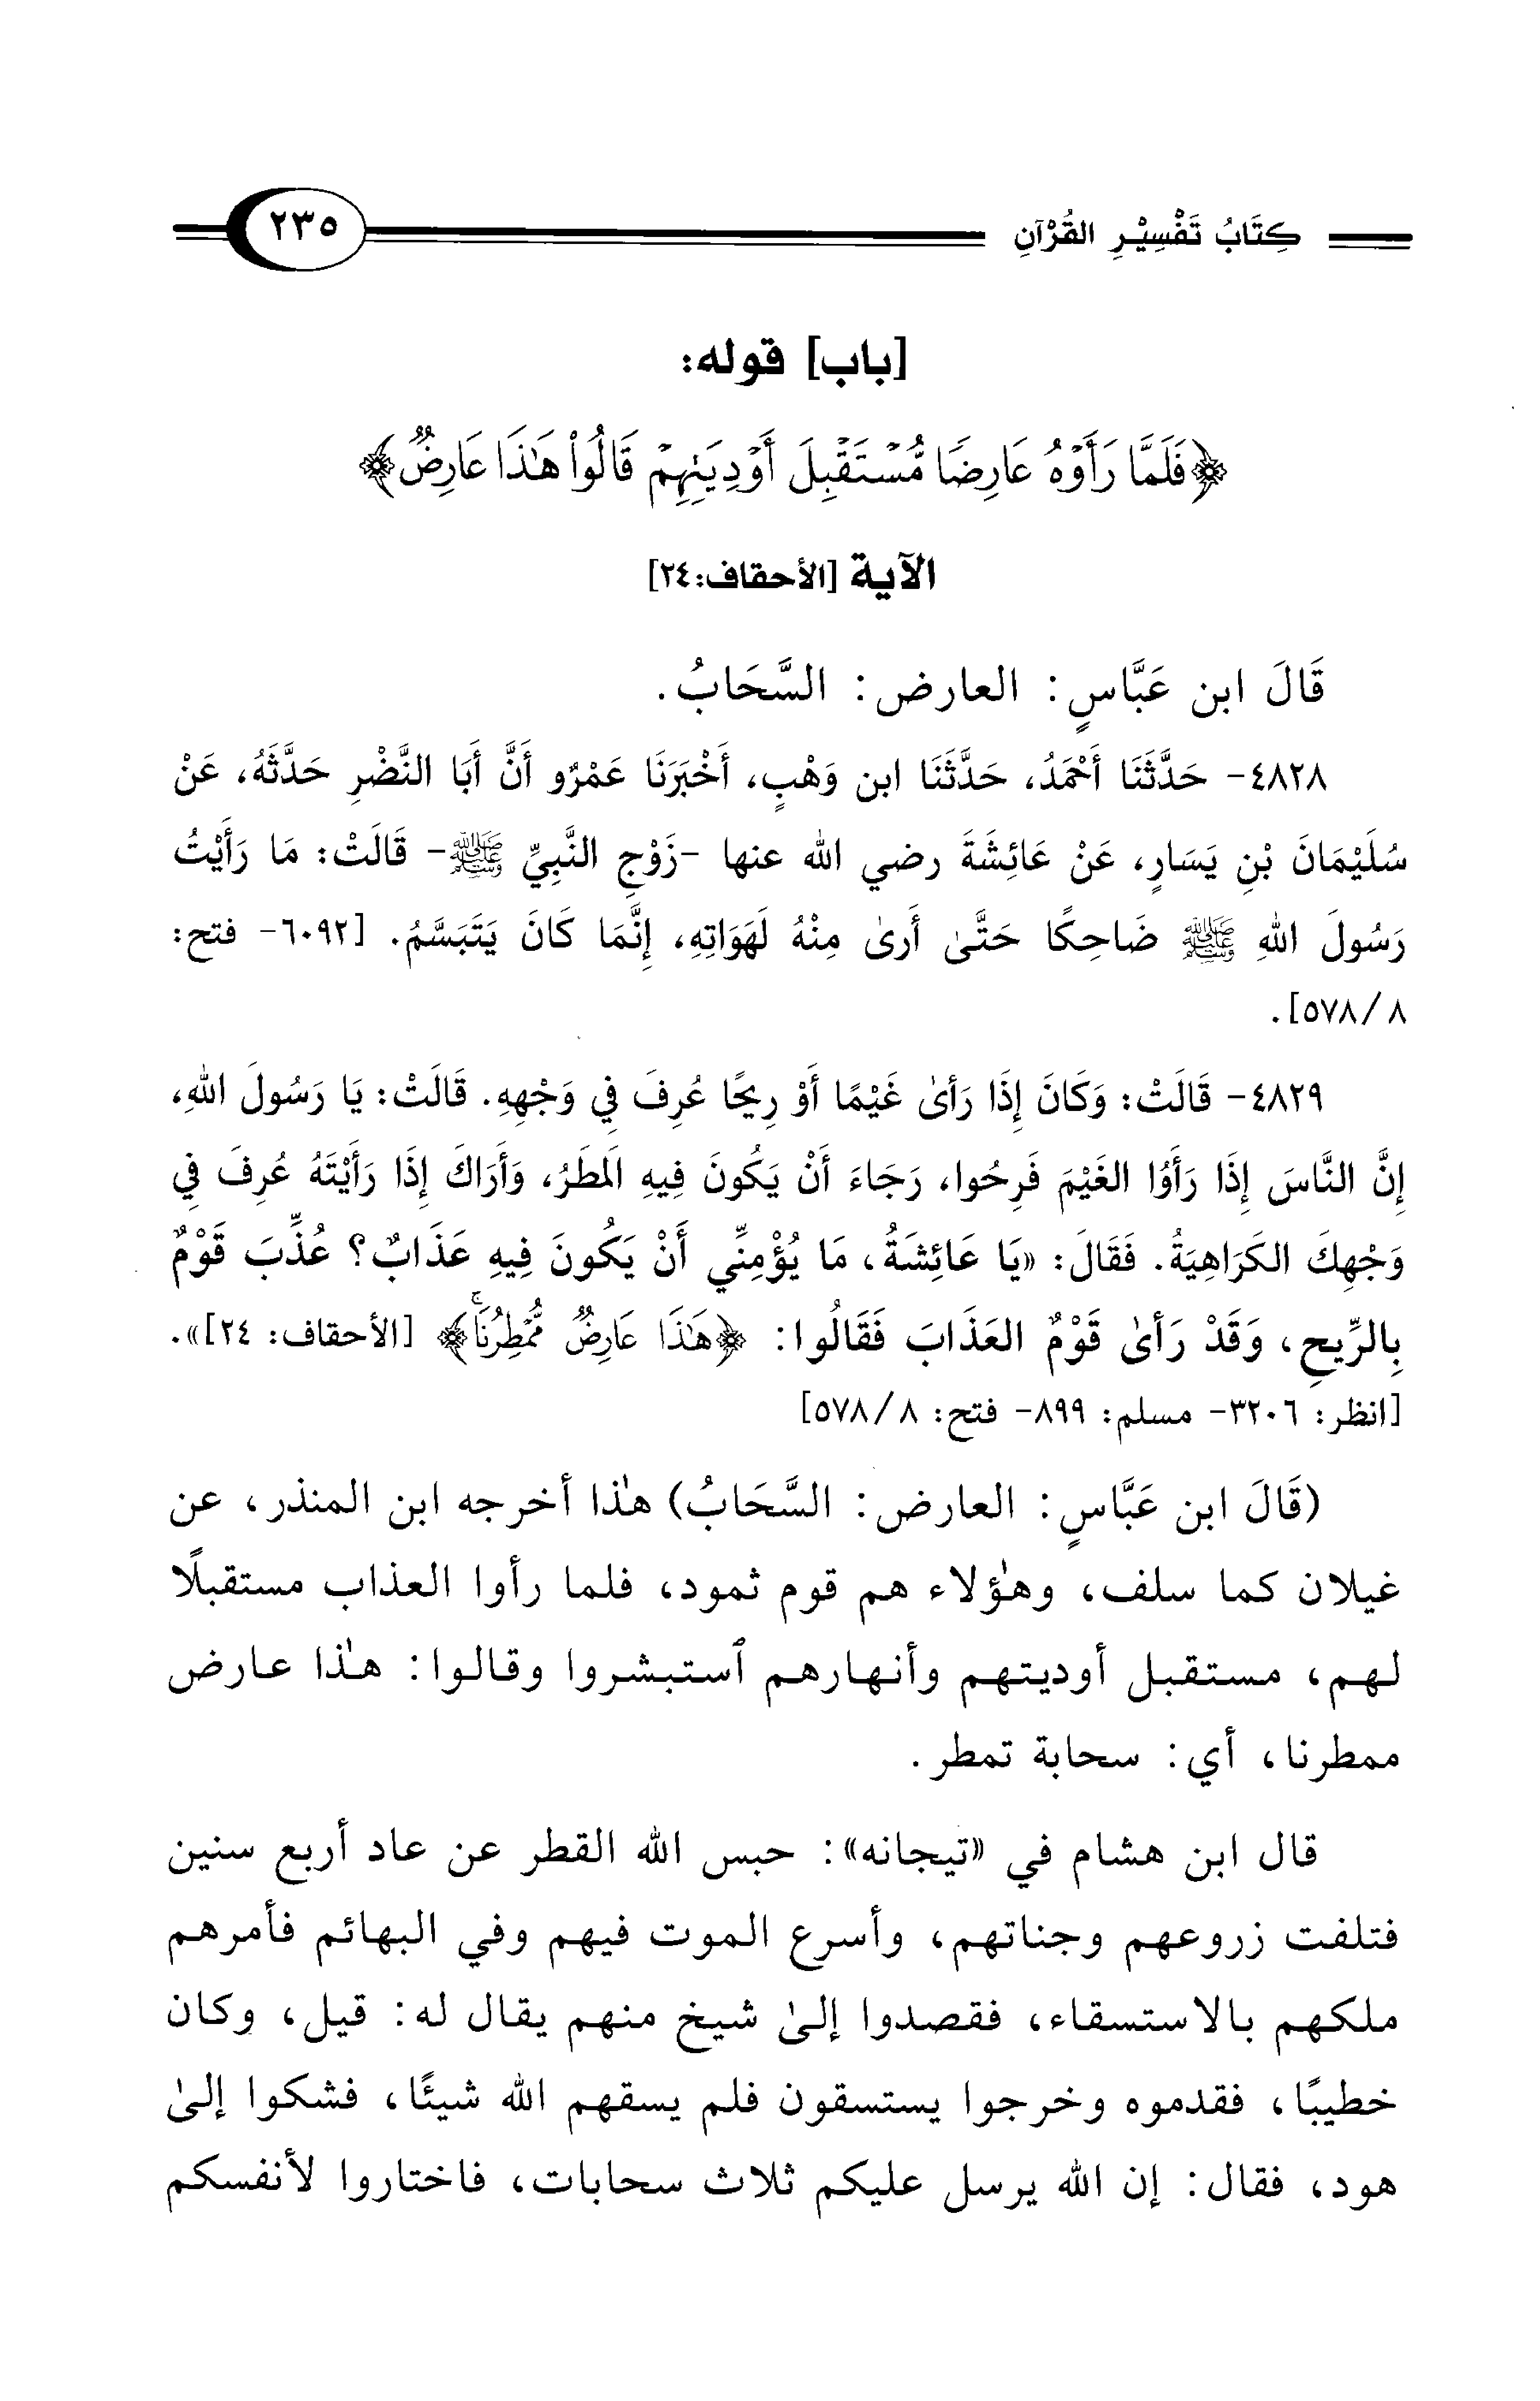 كِتَابُ تَفْسِيْرِ القُرْآنِ ٢٣٥
[باب] قوله:
﴿فَلَمَّا رَأَوْهُ عَارِضًا مُّسْتَقْبِلَ أَوْدِيَتِهِمْ قَالُواْ هَٰذَا عَارِضٌ﴾
الآية [الأحقاف:٢٤]
قَالَ ابن عَبَّاسٍ: العارض: السَّحَابُ.
٤٨٢٨- حَدَّثَنَا أَحْمَدُ، حَدَّثَنَا ابن وَهْبٍ، أَخْبَرَنَا عَمْرٌو أَنَّ أَبَا النَّضْرِ حَدَّثَهُ، عَنْ
سُلَيْمَانَ بْنِ يَسَارٍ، عَنْ عَائِشَةَ رضي الله عنها -زَوْجِ النَّبِيِّ ﷺ- قَالَتْ: مَا رَأَيْتُ
رَسُولَ اللهِ ﷺ ضَاحِكًا حَتَّىٰ أَرىٰ مِنْهُ لَهَوَاتِهِ، إِنَّمَا كَانَ يَتَبَسَّمُ. [٦٠٩٢- فتح:
٨/ ٥٧٨].
٤٨٢٩- قَالَتْ: وَكَانَ إِذَا رَأىٰ غَيْمًا أَوْ رِيحًا عُرِفَ فِي وَجْهِهِ. قَالَتْ: يَا رَسُولَ اللهِ،
إِنَّ النَّاسَ إِذَا رَأَوُا الغَيْمَ فَرِحُوا، رَجَاءَ أَنْ يَكُونَ فِيهِ المَطَرُ، وَأَرَاكَ إِذَا رَأَيْتَهُ عُرِفَ فِي
وَجْهِكَ الكَرَاهِيَةُ. فَقَالَ: «يَا عَائِشَةُ، مَا يُؤْمِنِّي أَنْ يَكُونَ فِيهِ عَذَابٌ؟ عُذِّبَ قَوْمٌ
بِالرِّيحِ، وَقَدْ رَأىٰ قَوْمٌ العَذَابَ فَقَالُوا: ﴿هَٰذَا عَارِضٌ مُّمْطِرُنَا﴾ [الأحقاف: ٢٤]».
[انظر: ٣٢٠٦- مسلم: ٨٩٩- فتح: ٨/ ٥٧٨]
(قَالَ ابن عَبَّاسٍ: العارض: السَّحَابُ) هٰذا أخرجه ابن المنذر، عن
غيلان كما سلف، وهٰؤلاء هم قوم ثمود، فلما رأوا العذاب مستقبلًا
لهم، مستقبل أوديتهم وأنهارهم ٱستبشروا وقالوا: هٰذا عارض
ممطرنا، أي: سحابة تمطر.
قال ابن هشام في «تيجانه»: حبس الله القطر عن عاد أربع سنين
فتلفت زروعهم وجناتهم، وأسرع الموت فيهم وفي البهائم فأمرهم
ملكهم بالاستسقاء، فقصدوا إلىٰ شيخ منهم يقال له: قيل، وكان
خطيبًا، فقدموه وخرجوا يستسقون فلم يسقهم الله شيئًا، فشكوا إلىٰ
هود، فقال: إن الله يرسل عليكم ثلاث سحابات، فاختاروا لأنفسكم